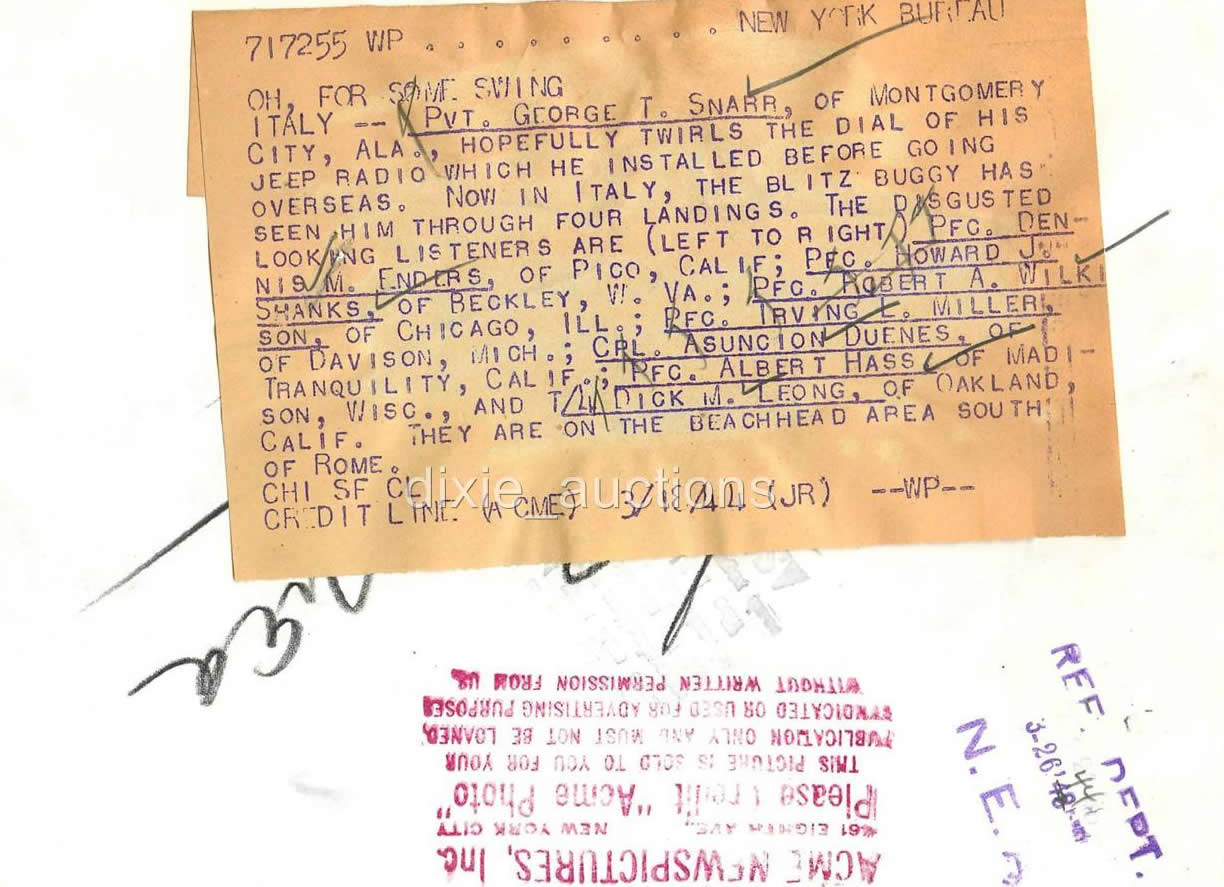 717255 WP . . . . . . . . . . NEW YORK BUREAU
OH, FOR SOME SWING
ITALY -- PVT. GEORGE T. SNARR, OF MONTGOMERY
CITY, ALA., HOPEFULLY TWIRLS THE DIAL OF HIS
JEEP RADIO WHICH HE INSTALLED BEFORE GOING
OVERSEAS. NOW IN ITALY, THE BLITZ BUGGY HAS
SEEN HIM THROUGH FOUR LANDINGS. THE DISGUSTED
LOOKING LISTENERS ARE (LEFT TO RIGHT) PFC. DEN-
NIS M. ENDERS, OF PICO, CALIF; PFC. HOWARD J.
SHANKS, OF BECKLEY, W. VA.; PFC. ROBERT A. WILKI
SON, OF CHICAGO, ILL.; PFC. IRVING E. MILLER,
OF DAVISON, MICH.; CPL. ASUNCION DUENES, OF
TRANQUILITY, CALIF.; PFC. ALBERT HASS OF MADI-
SON, WISC., AND DICK M. LEONG, OF OAKLAND,
CALIF. THEY ARE ON THE BEACHHEAD AREA SOUTH
OF ROME.
CHI SF CL
CREDIT LINE (ACME) 3/18/44 (JR) --WP--
dixie_auctions
ACME NEWSPICTURES, Inc.
461 EIGHTH AVE., NEW YORK CITY
Please Credit "Acme Photo"
THIS PICTURE IS SOLD TO YOU FOR YOUR
PUBLICATION ONLY AND MUST NOT BE LOANED,
SYNDICATED OR USED FOR ADVERTISING PURPOSES
WITHOUT WRITTEN PERMISSION FROM US.
REF. DEPT.
N. E. A